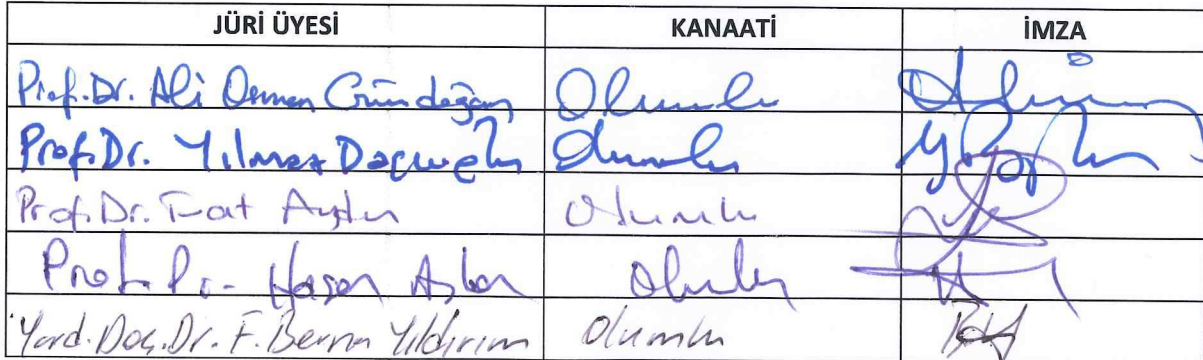 JÜRİ ÜYESİ KANAATİ İMZA
Prof.Dr. Ali Osman Gündoğan Olumlu
Prof.Dr. Yılmaz Olumlu
Prof.Dr. Fuat Aydın Olumlu
Prof. Dr. Hasan Olumlu
Yard.Doç.Dr. F. Berna Yıldırım Olumlu